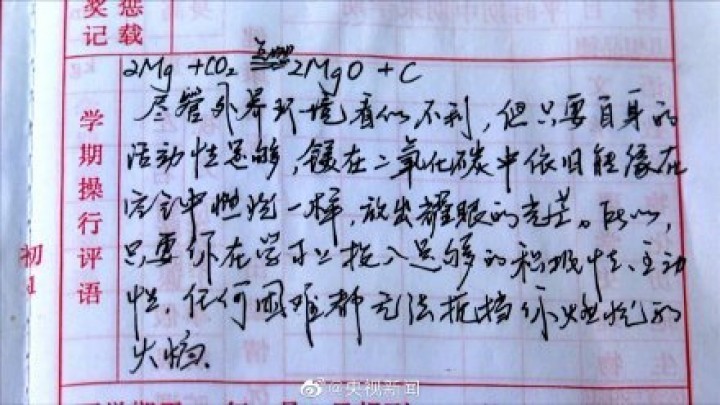 奖惩
记载
学期操行评语
初
2Mg + CO₂ 点燃 2MgO + C
尽管外界环境看似不利，但只要自身的
活动性足够，镁在二氧化碳中依旧能像在
空气中燃烧一样，放出耀眼的光芒。所以，
只要你在学习上投入足够的积极性、主动
性，任何困难都无法抵挡你燃烧的
火焰。
@央视新闻